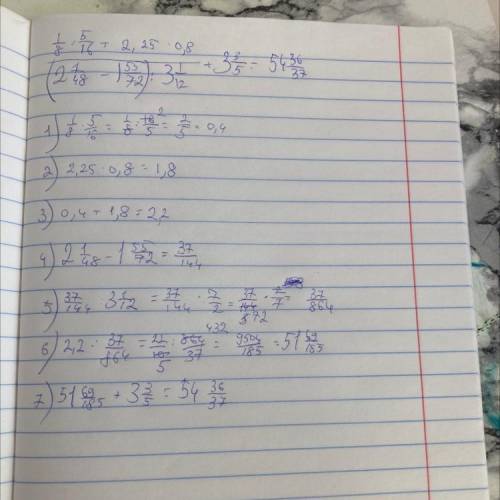 1/8 : 5/16 + 2,25 · 0,8
(2 1/48 - 1 55/72) : 3 1/12 + 3 3/5 = 54 36/37
1) 1/8 : 5/16 = 1/8 · 16/5 2 = 2/5 = 0,4
2) 2,25 · 0,8 = 1,8
3) 0,4 + 1,8 = 2,2
4) 2 1/48 - 1 55/72 = 37/144
5) 37/144 · 3 1/12 = 37/144 · 7/2 = 37/144 · 2/7 = 37/864
6) 2,2 : 37/864 = 22/10 5 · 864/37 432 = 9504/185 = 51 69/185
7) 51 69/185 + 3 3/5 = 54 36/37